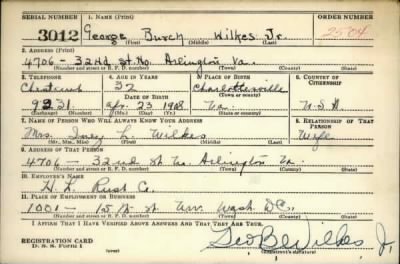 SERIAL NUMBER 1. NAME (Print) ORDER NUMBER
3012 George Burch Wilkes Jr. 2504
(First) (Middle) (Last)
2. ADDRESS (Print)
4706 - 32nd St. No. Arlington Va.
(Number and street or R. F. D. number) (Town) (County) (State)
3. TELEPHONE 4. AGE IN YEARS 5. PLACE OF BIRTH 6. COUNTRY OF CITIZENSHIP
Chestnut 32 Charlottesville
DATE OF BIRTH (Town or county)
9231 Apr. 23 1908 Va. U.S.A.
(Exchange) (Number) (Mo.) (Day) (Yr.) (State or country)
7. NAME OF PERSON WHO WILL ALWAYS KNOW YOUR ADDRESS 8. RELATIONSHIP OF THAT PERSON
Mrs. Inez L. Wilkes Wife
(Mr., Mrs., Miss) (First) (Middle) (Last)
9. ADDRESS OF THAT PERSON
4706 - 32nd St No. Arlington Va.
(Number and street or R. F. D. number) (Town) (County) (State)
10. EMPLOYER'S NAME
H. L. Rust Co.
11. PLACE OF EMPLOYMENT OR BUSINESS
1001 - 15th St NW. Wash D.C.
(Number and street or R. F. D. number) (Town) (County) (State)
I AFFIRM THAT I HAVE VERIFIED ABOVE ANSWERS AND THAT THEY ARE TRUE.
REGISTRATION CARD Geo B Wilkes Jr.
D. S. S. Form 1 (Registrant's signature)